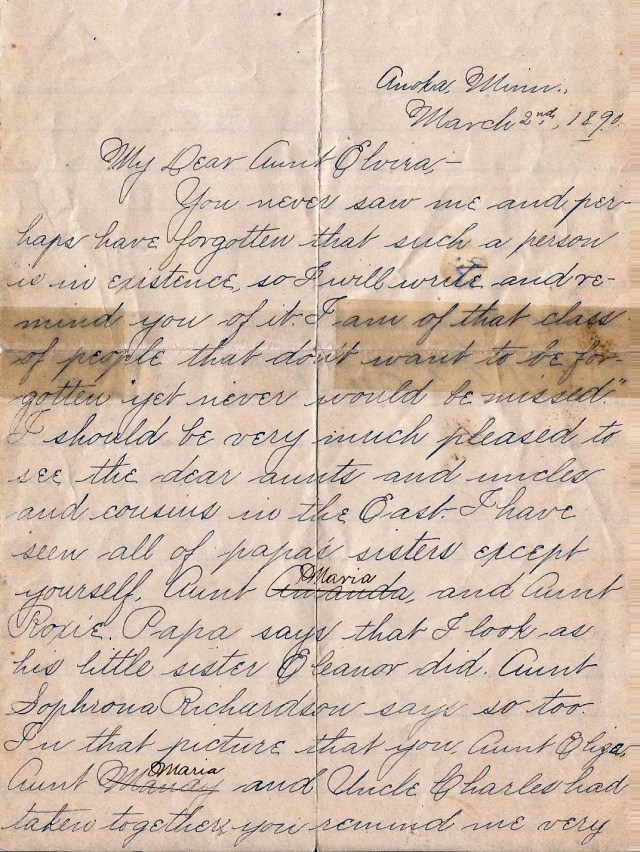 Anoka, Minn.,
March 2nd, 1890.
My Dear Aunt Elvira,—
You never saw me and per-
haps have forgotten that such a person
is in existence, so I will write and re-
mind you of it. I am of that class
of people that don't want to be for-
gotten "yet never would be missed."
I should be very much pleased to
see the dear aunts and uncles
and cousins in the East. I have
seen all of papa's sisters except
Maria
yourself, Aunt Amanda, and Aunt
Roxie. Papa says that I look as
his little sister Eleanor did. Aunt
Sophrona Richardson says so too.
In that picture that you, Aunt Eliza,
Maria
Aunt Manay and Uncle Charles had
taken together, you remind me very